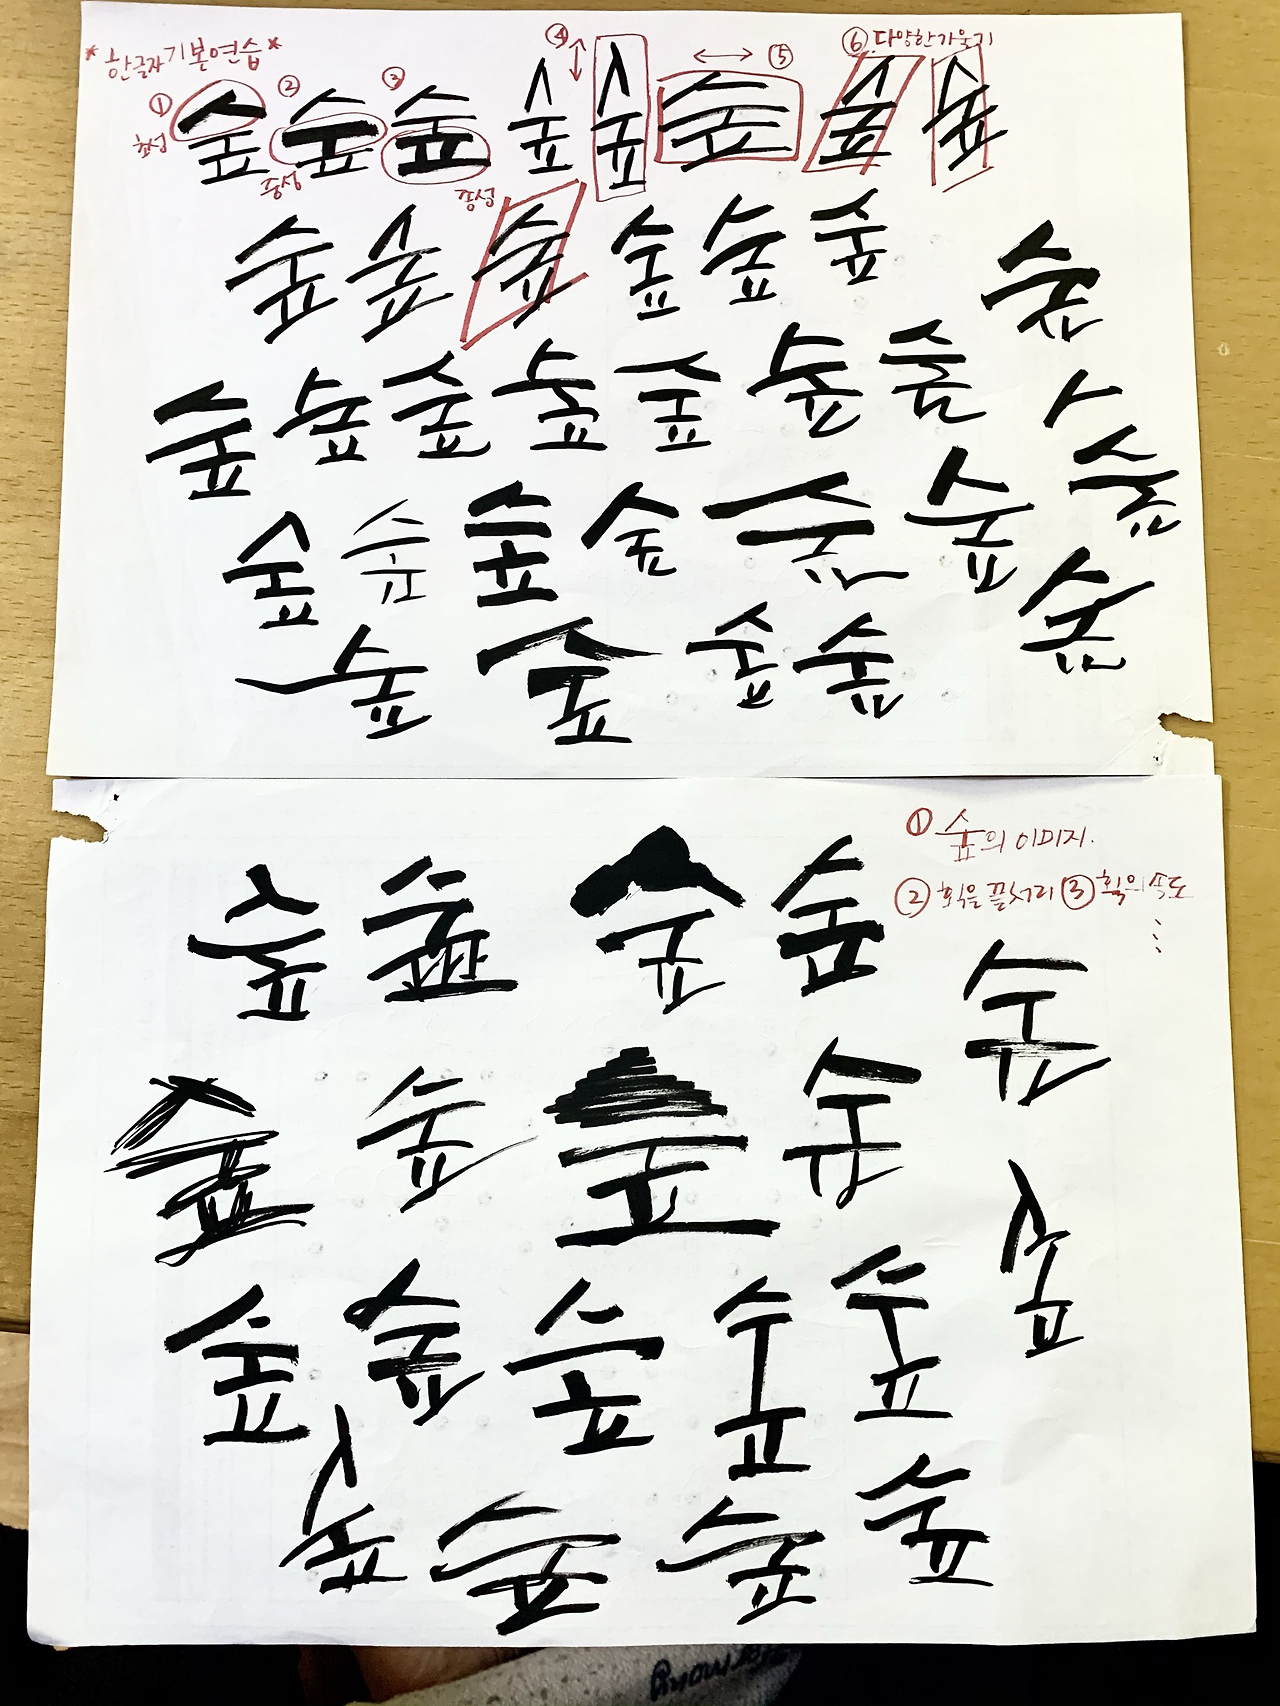 *한글자기본연습*
① 숲 ② 숲 ③ 숲 ④ 숲 숲 숲 ⑤ ⑥ 다양한기울기 숲 숲
초성 중성 종성
숲 숲 숲 숲 숲 숲 숲
숲 숲 숲 숲 숲 숲 숲 숲 숲
숲 숲 숲 숲 숲 숲 숲
숲 숲 숲 숲
① 숲의 이미지.
② 획의 끝처리 ③ 획의 속도
숲 숲 숲 숲 숲
숲 숲 숲 숲 숲
숲 숲 숲 숲 숲
숲 숲 숲 숲